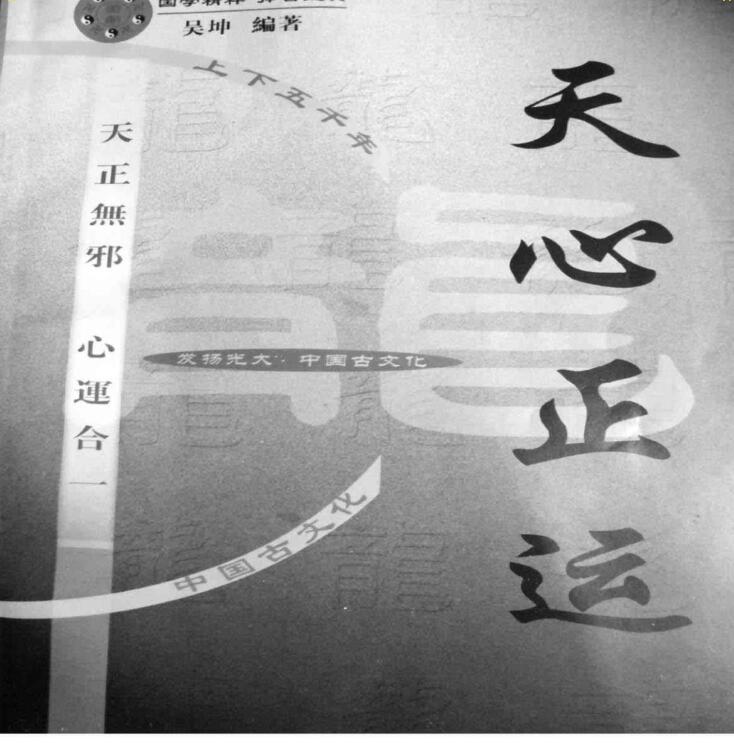 吴坤 編著
上下五千年
天心正运
天正無邪 心運合一
发扬光大··中国古文化
中国古文化